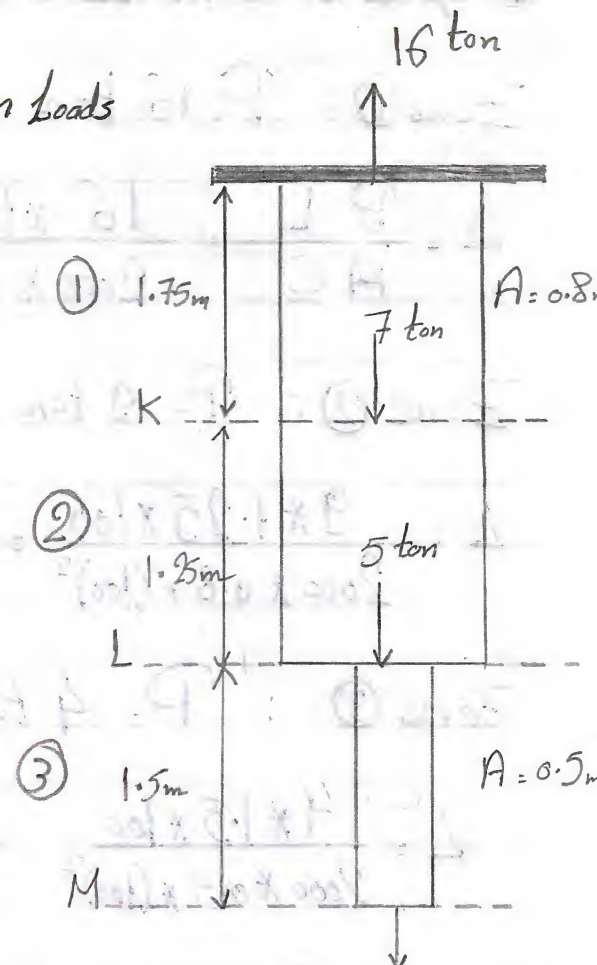 16 ton
Loads
① 1.75m
A = 0.8
7 ton
K
②
1.25m
5 ton
L
③
1.5m
A = 0.5m
M